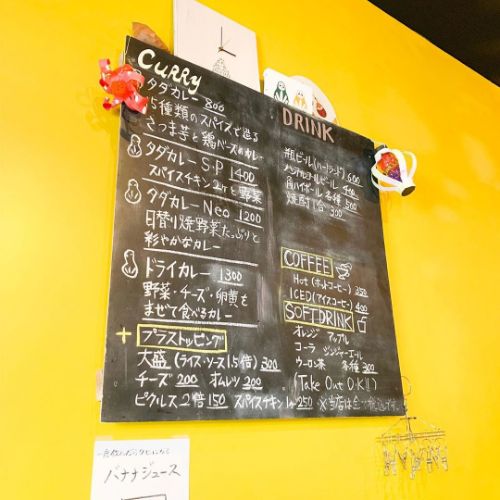 CURRY
タダカレー 800
15種類のスパイスで造る
さつま芋と鶏ベースのカレー
タダカレー S・P 1400
スパイスチキン2ヶと野菜
タダカレー Neo 1200
日替り焼野菜たっぷりと
彩やかなカレー
ドライカレー 1300
野菜・チーズ・卵黄を
まぜて食べるカレー
+ プラストッピング
大盛(ライス・ソース1.5倍) 300
チーズ 200 オムレツ 200
ピクルス2倍 150 スパイスチキン1ヶ 250
DRINK
瓶ビール(ハートランド) 600
ノンアルコールビール 400
角ハイボール 各種 500
焼酎1合 300
COFFEE
Hot (ホットコーヒー) 350
ICED (アイスコーヒー) 400
SOFTDRINK
オレンジ アップル
コーラ ジンジャーエール
ウーロン茶 各種 300
(Take Out O.K!!)
※当店は全て税込です
バナナジュース